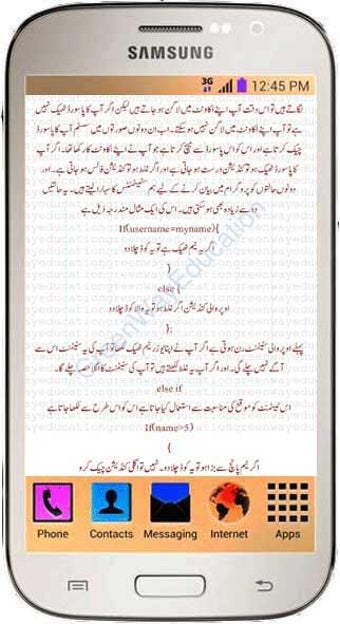 SAMSUNG
3G 12:45 PM
لگاتے ہیں تو اس وقت آپ اپنے اکاونٹ میں لاگن ہو جاتے ہیں لیکن اگر آپ کا پاسورڈ ٹھیک نہیں
ہے تو آپ اپنے اکاونٹ میں لاگن نہیں ہو سکتے۔ اب ان دونوں صورتوں میں سسٹم آپ کا پاسورڈ
چیک کرتا ہے اور اس کو اس پاسورڈ سے میچ کرتا ہے جو آپ نے اپنے اکاونٹ کا رکھا تھا۔ اگر آپ
کا پاسورڈ ٹھیک ہو تو کنڈیشن درست ہو جاتی ہے اور اگر غلط ہو تو کنڈیشن فالس ہو جاتی ہے۔ اور
دونوں حالتوں کو پروگرام میں بیان کرنے کے لیے ہم سٹیٹمنٹس کا سہارا لیتے ہیں۔ یہ حالتیں
دو سے زیادہ بھی ہو سکتی ہیں۔ اس کی ایک مثال مندرجہ ذیل ہے
If(username=myname){
اگر یہ نیم ٹھیک ہے تو یہ کوڈ چلا دو
}
else {
اوپر والی کنڈیشن اگر غلط ہو تو یہ والا کوڈ چلا دو
};
پہلے اوپر والی سٹیٹمنٹ رن ہوتی ہے اگر آپ نے اپنا یوزر نیم ٹھیک لکھا تو آپ کی یہ سٹیٹمنٹ اس سے
آگے نہیں چلے گی۔ اور اگر آپ یہ غلط لکھتے ہیں تو آپ کی سٹیٹمنٹ کا اگلا حصہ چلے گا۔
else if
اس سٹیٹمنٹ کو موقع کی مناسبت سے استعمال کیا جاتا ہے اس کو اس طرح سے لکھا جاتا ہے
If(name>5)
{
اگر نیم پانچ سے بڑا ہو تو یہ کوڈ چلا دو۔ نہیں تو اگلی کنڈیشن چیک کرو
Phone Contacts Messaging Internet Apps
GreenWay Education